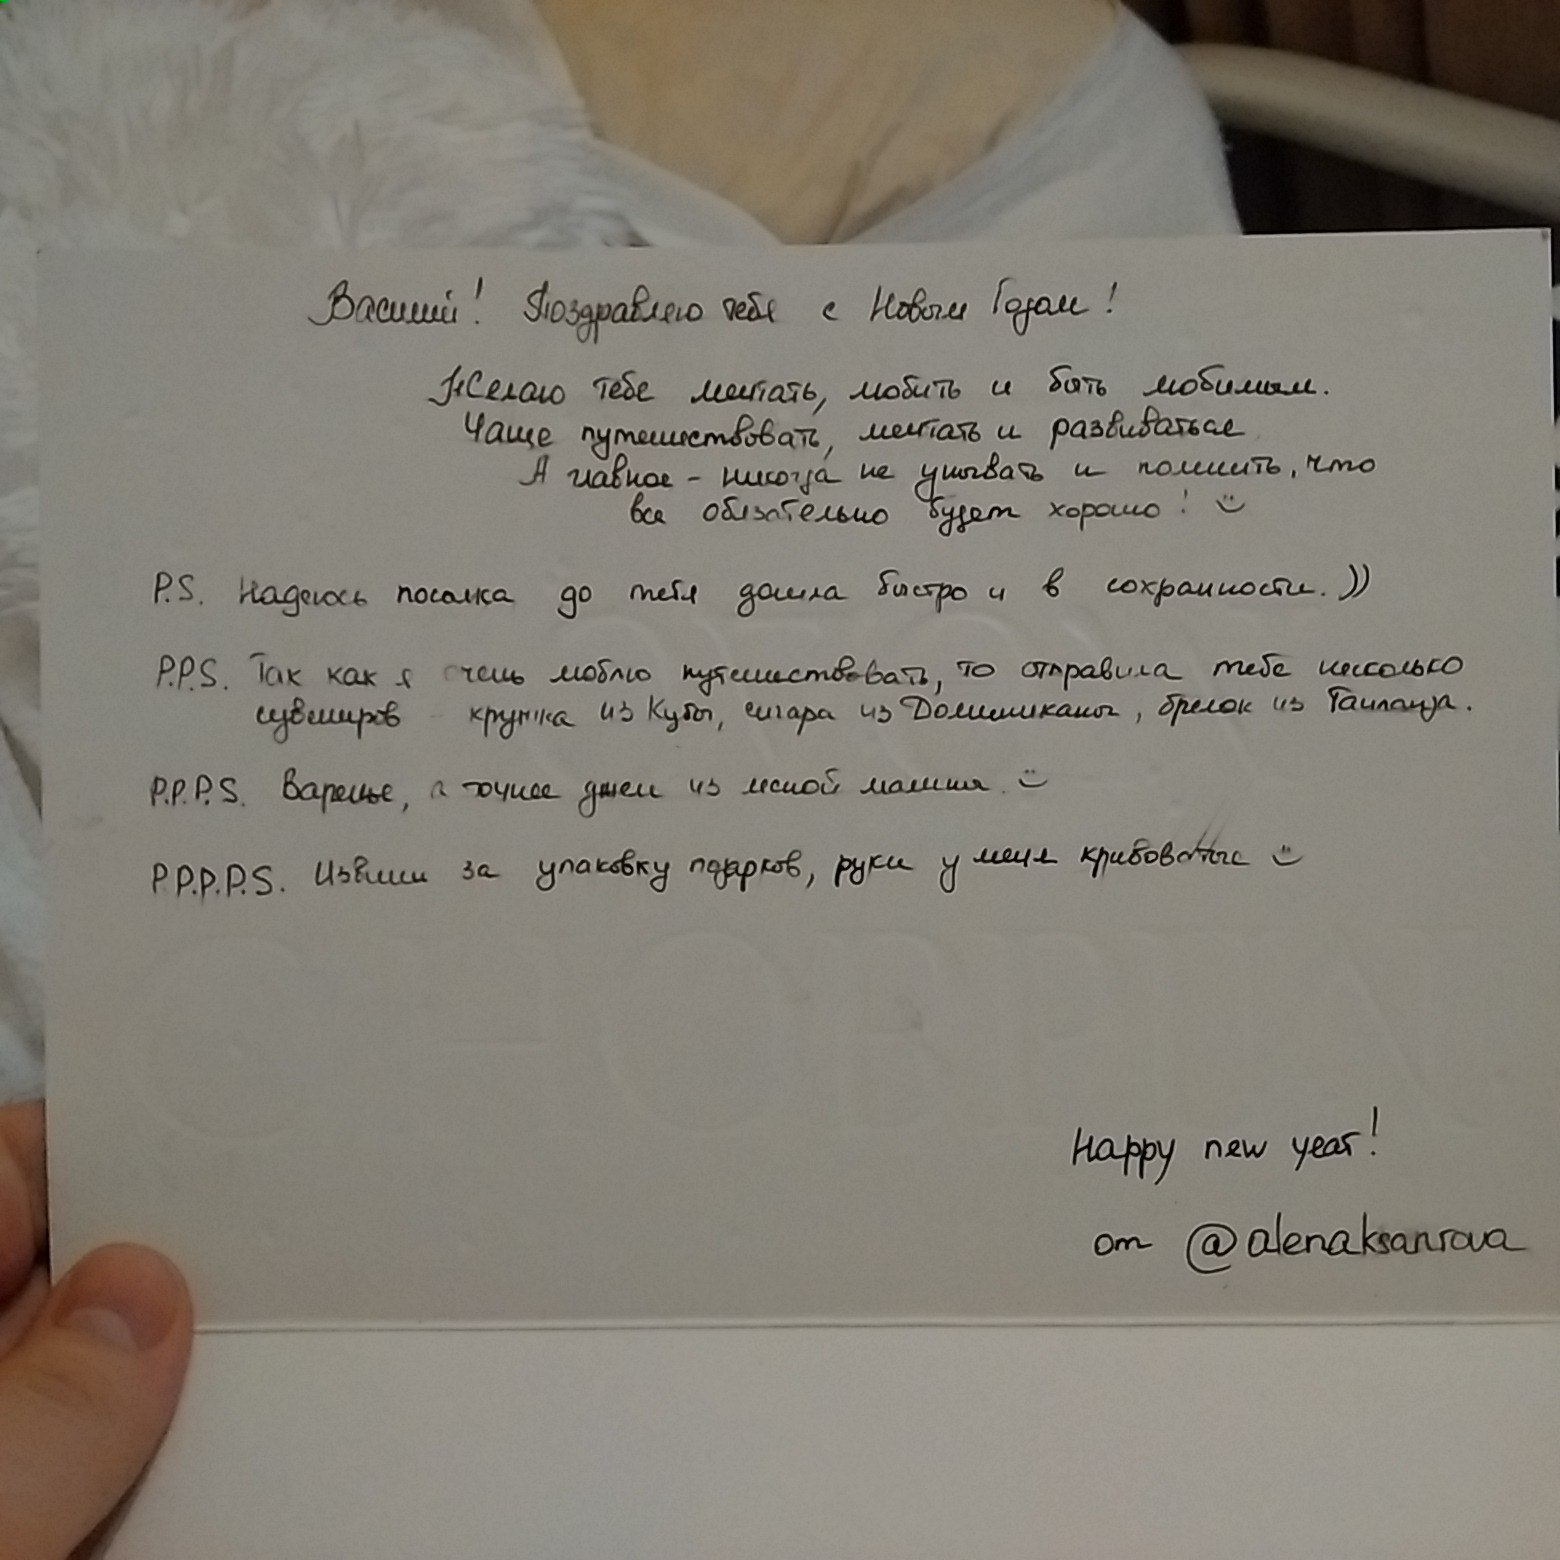 Василий! Поздравляю тебя с Новым Годом!
Желаю тебе мечтать, любить и быть любимым.
Чаще путешествовать, мечтать и развиваться
А главное - никогда не унывать и помнить, что
все обязательно будет хорошо!
P.S. Надеюсь посылка до тебя дошла быстро и в сохранности.))
P.P.S. Так как я очень люблю путешествовать, то отправила тебе несколько
сувениров - кружка из Кубы, сигара из Доминиканы, брелок из Таиланда.
P.P.P.S. Варенье, а точнее джем из лесной малины.
P.P.P.P.S. Извини за упаковку подарков, руки у меня кривоватые
Happy new year!
от @alenaksanrova